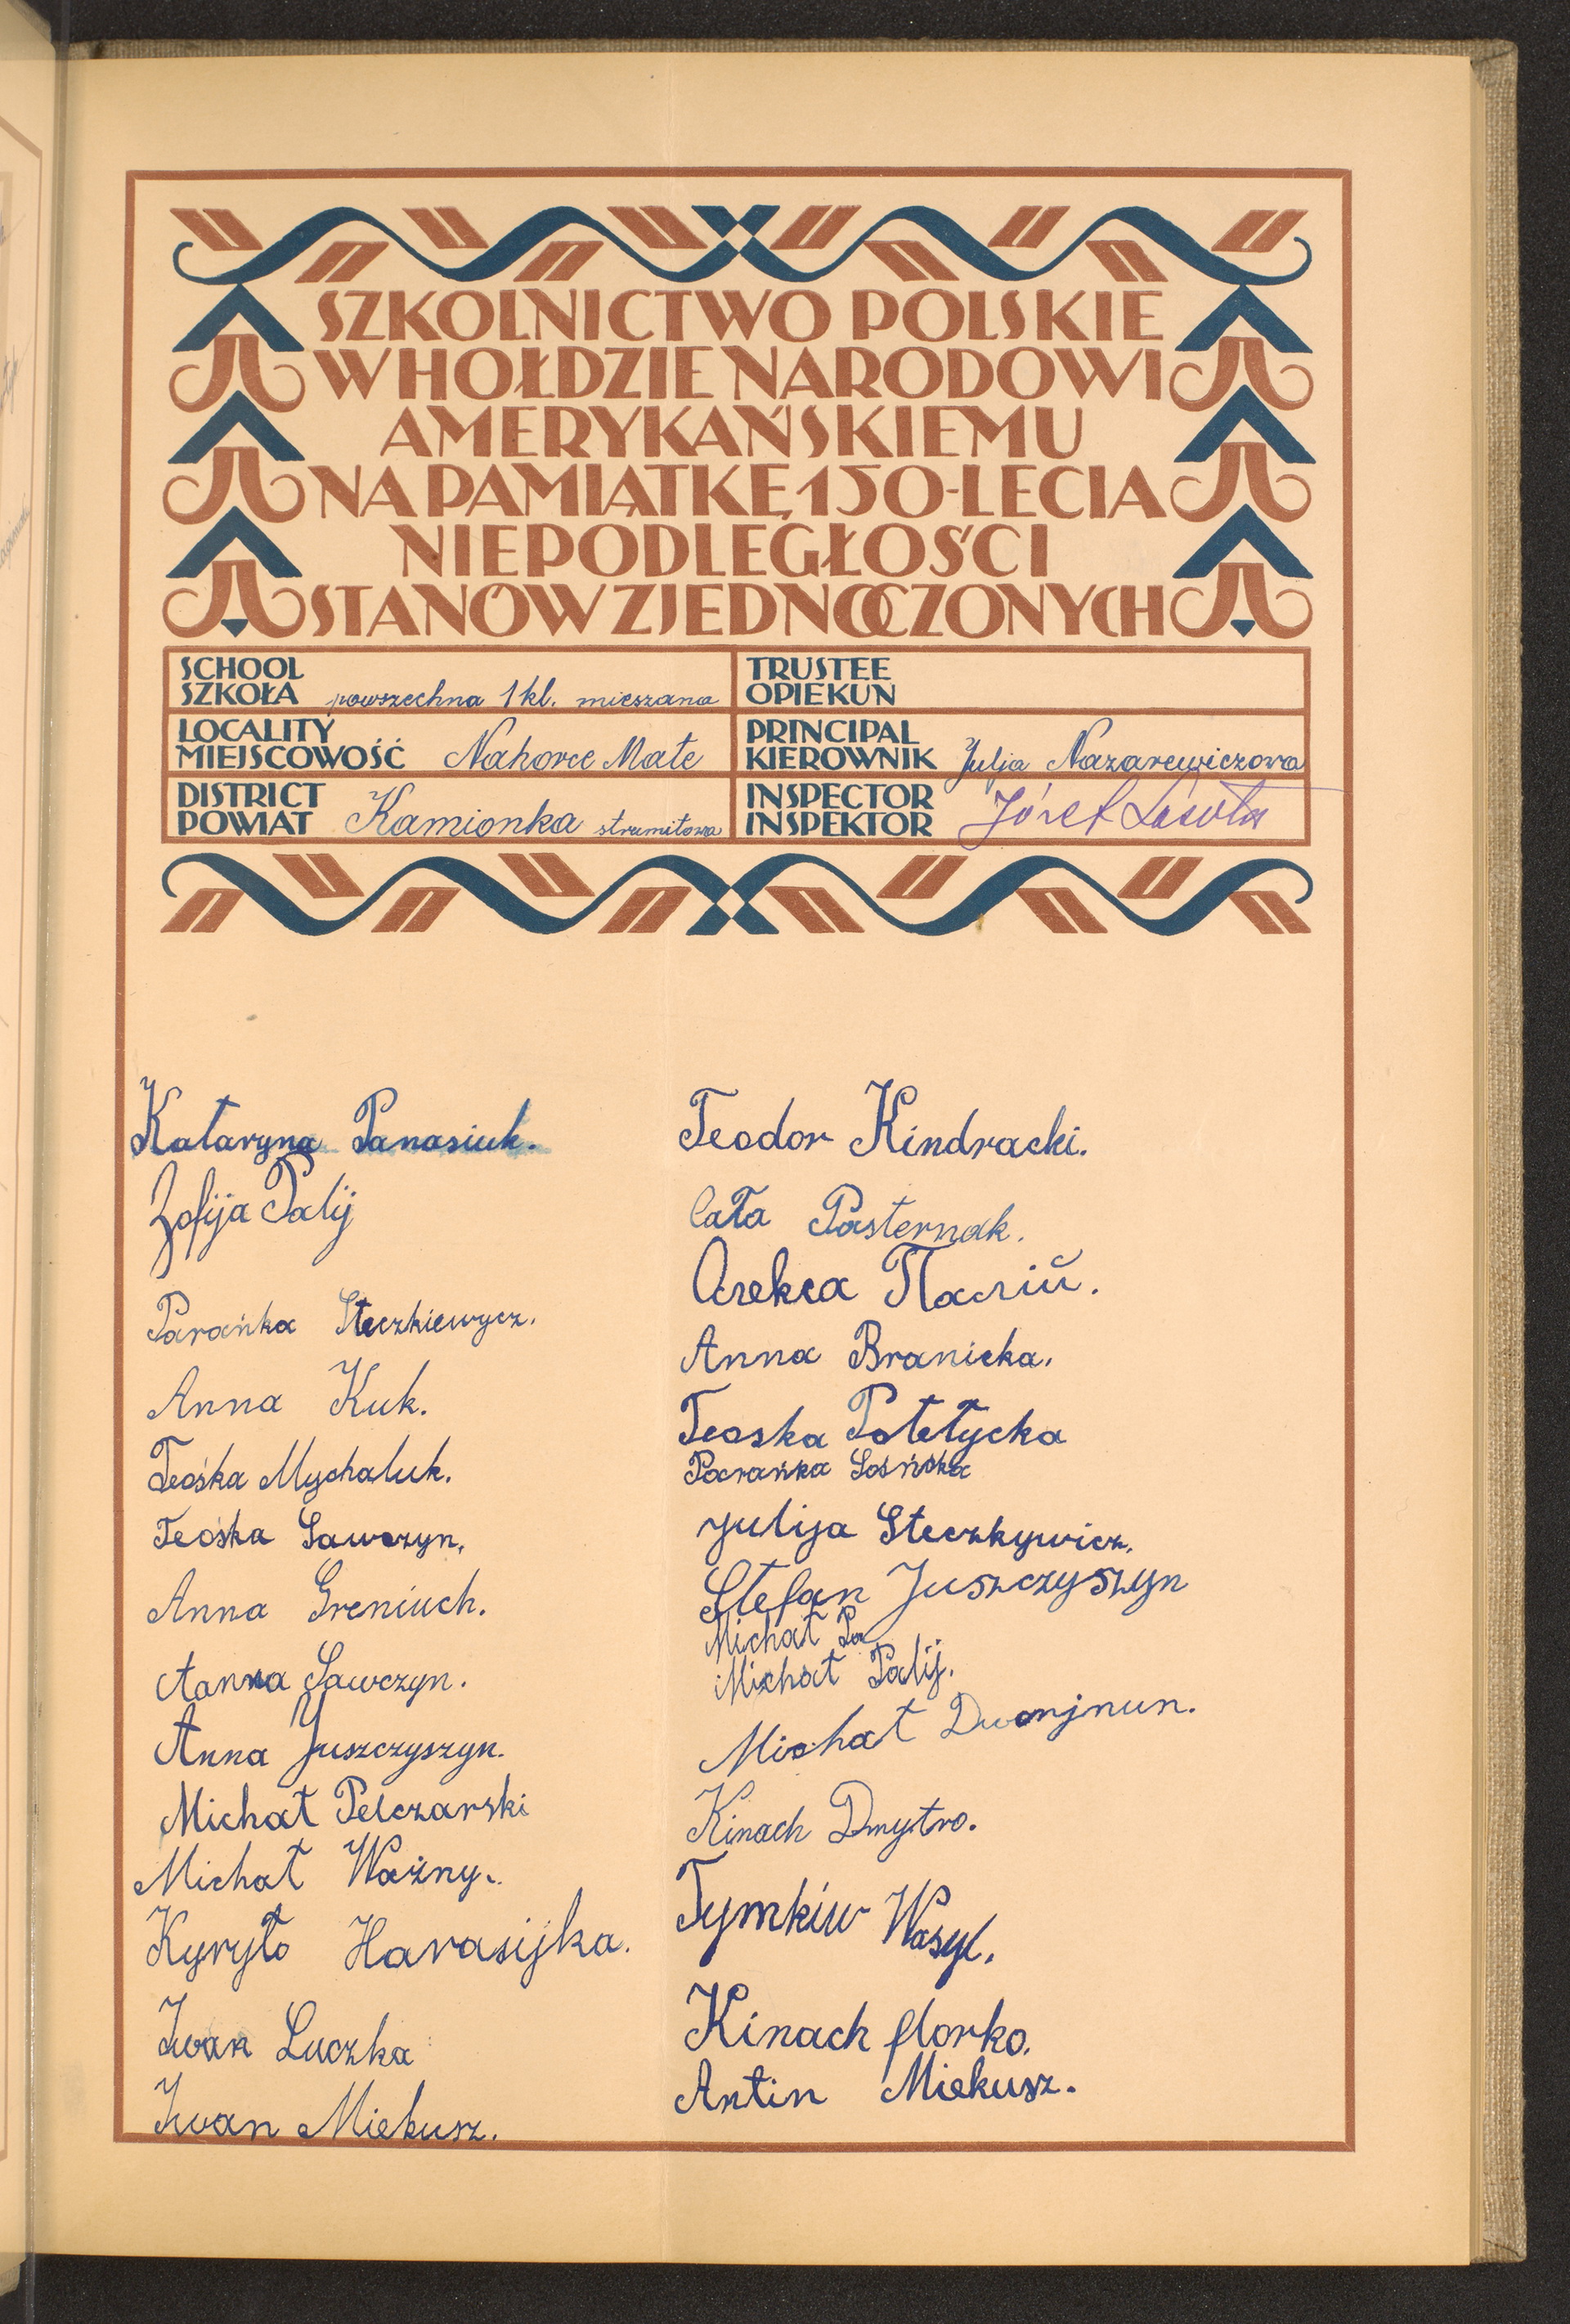 SZKOLNICTWO POLSKIE
W HOŁDZIE NARODOWI
AMERYKAŃSKIEMU
NA PAMIĄTKĘ 150-LECIA
NIEPODLEGŁOŚCI
STANÓW ZJEDNOCZONYCH
SCHOOL
SZKOŁA powszechna 1 kl. mieszana
TRUSTEE
OPIEKUN
LOCALITY
MIEJSCOWOŚĆ Nahorce Małe
PRINCIPAL
KIEROWNIK Julja Nazarewiczowa
DISTRICT
POWIAT Kamionka strumiłowa
INSPECTOR
INSPEKTOR Józef Lasota
Kataryna Panasiuk.
Zofija Palij
Parańka Steczkiewycz.
Anna Kuk.
Teośka Mychaluk.
Teośka Sawczyn.
Anna Greniuch.
Anna Sawczyn.
Anna Juszczyszyn.
Michał Pelczarski
Michał Ważny.
Kyryło Harasijka.
Iwan Luczka
Iwan Miekusz.
Teodor Kindracki.
Pasternak.
Олекса Палій.
Anna Branicka.
Teoska Potetycka
Parańka Sośnśka
Julija Steczkywicz.
Stefan Juszczyszyn
Michał Pa
Michał Palij.
Michał
Kinach Dmytro.
Tymkiw Wasyl.
Kinach florko.
Antin Miekusz.